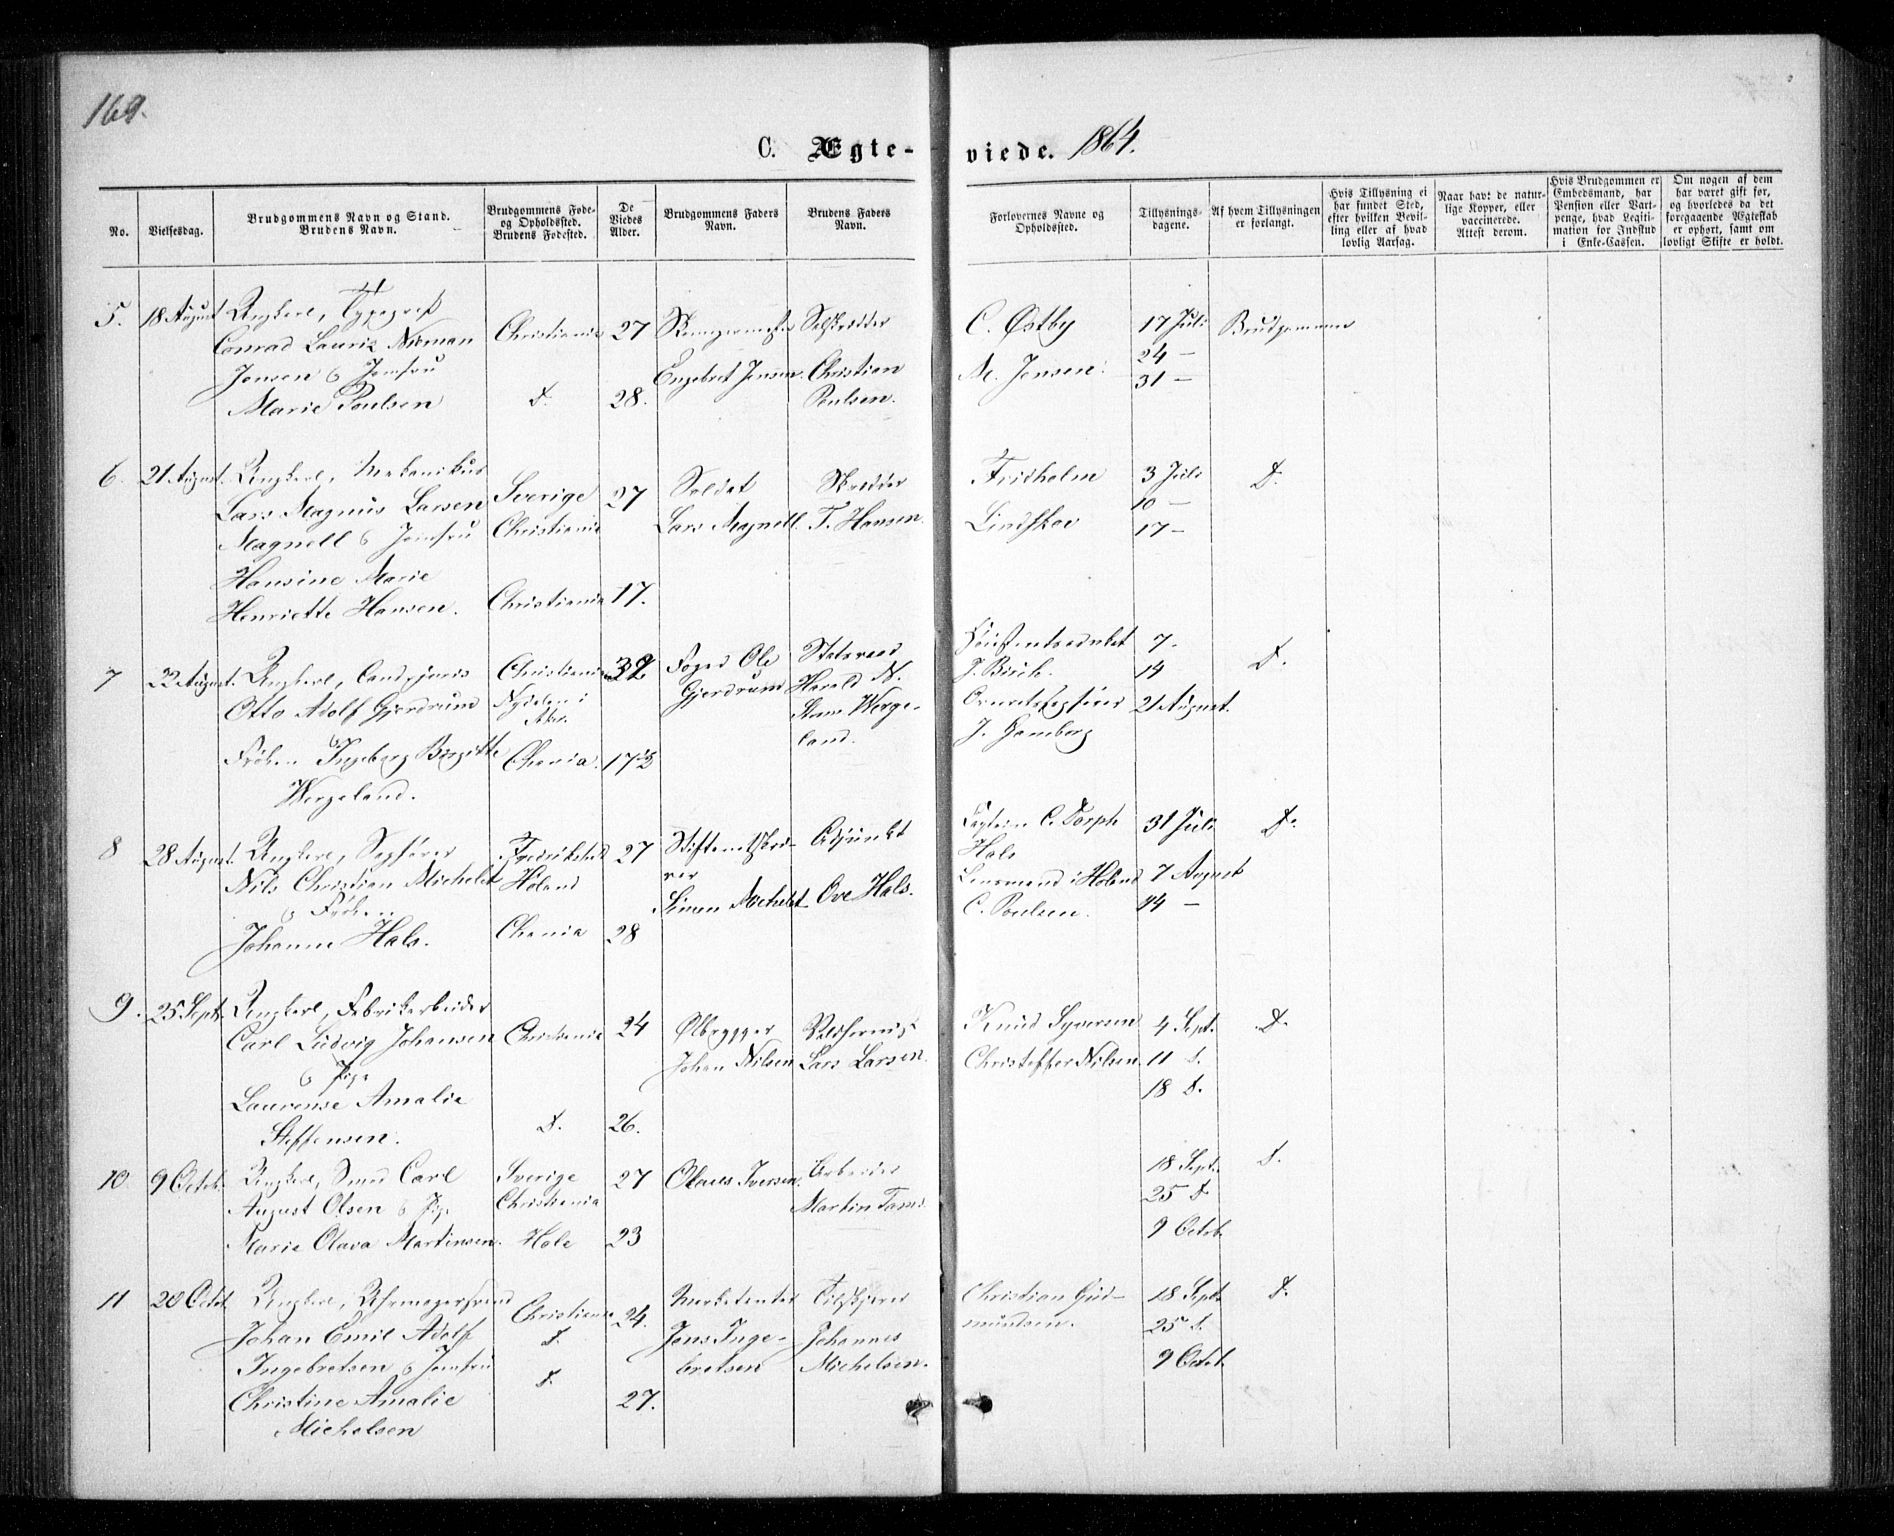 169.
C. Ægte-
viede. 1864.
No.
Vielsesdag.
Brudgommens Navn og Stand.
Brudens Navn.
Brudgommens Føde-
og Opholdssted.
Brudens Fødested.
De
Viedes
Alder.
Brudgommens Faders
Navn.
Brudens Faders
Navn.
Forlovernes Navne og
Opholdssted.
Tillysnings-
dagene.
Af hvem Tillysningen
er forlangt.
Hvis Tillysning ei
har fundet Sted,
efter hvilken Bevil-
ling eller af hvad
lovlig Aarsag.
Naar havt de natur-
lige Kopper, eller
vaccinerede.
Attest derom.
Hvis Brudgommen er
Embedsmand, har
Pension eller Vart-
penge, hvad Legiti-
mation for Indskud
i Enke-Cassen.
Om nogen af dem
har været gift før,
og hvorledes da det
foregaaende Ægteskab
er ophørt, samt om
lovligt Skifte er holdt.
5. 18 August Ungkarl, Typograf
Conrad Lauriz Nieman
Jensen & Jomfru
Marie Poulsen
Christiania 27
d. 28.
Engebret Jensen.
Christian
Poulsen.
C. Østby
M. Jensen.
17 Juli
24 —
31 —
Brudgommen
6. 21 August. Ungkarl, Mekanikus
Lars Magnus Larsen
Magnell & Jomfru
Hansine Marie
Henriette Hansen.
Sverige 27
Christiania
Christiania 17.
Soldat
Lars Magnell.
Skrædder
T. Hansen.
Fridholm
Lindskov
3 Juli
10 —
17 —
d.
7 22 August. Ungkarl, Cand. juris
Otto Adolf Gjerdrum
&
Frøken Ingeborg Birgitte
Wergeland.
Christiania 32
Nydalen i
Aker.
Chania. 17½
Foged Ole
Gjerdrum
Statsraad
Harald N.
Storm Werge-
land.
J. Birch.
Overretssagfører
J. Hamberg
7.
14
21 August.
d.
8 28 August. Ungkarl, Sagfører
Nils Christian Michelet
& Frøken
Johanne Hals.
Fredrikstad 27
Høland
Chania 28
Stiftamtskri-
ver
Simen Michelet
Adjunkt
Ove Hals.
Captein C. Torph
Hals
Lensmand i Høland
C. Poulsen.
31 Juli
7 August
14 —
d.
9. 25 Sept. Ungkarl, Fabrikarbeider
Carl Ludvig Johansen
& Pige
Laurense Amalie
Steffensen.
Christiania 24
d. 26.
Ølbrygger
Johan Nilsen
Lars Larsen.
Knud Syversen
Christoffer Nilsen.
4 Sept.
11 d.
18 d.
d.
10. 9 Octob. Ungkarl, Smed Carl
August Olsen & Pige
Marie Olava Martinsen.
Sverige 27
Christiania
Hole 23
Olaus Iversen.
Arbeider
Martin Tams.
18 Sept.
25 d.
9 Octob.
d.
11 20 Octob. Ungkarl, Uhrmagersvend
Johan Emil Adolf
Ingebretsen & Jomfru
Christine Amalie
Michelsen
Christiania 24.
d.
d.
27.
Marketenter
Jens Inge-
bretsen
Johannes
Michelsen.
Christian Gud-
mundsen.
18 Sept.
25 d.
9 Octob.
d.